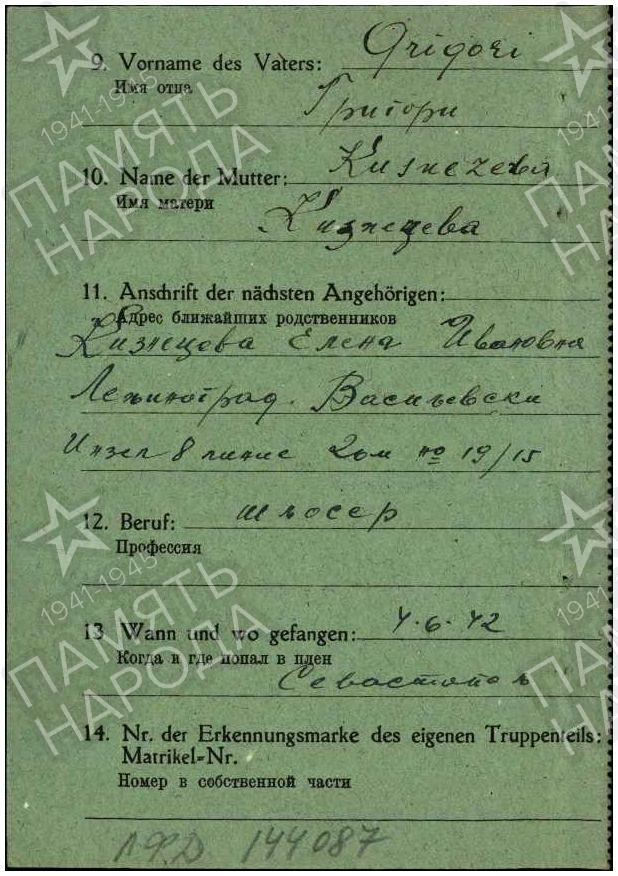 9. Vorname des Vaters: Grigori
Имя отца
Григори
10. Name der Mutter: Kisnezewa
Имя матери
Кизнецева
11. Anschrift der nächsten Angehörigen:
Адрес ближайших родственников
Кизнецова Елена Ивановна
Лениноград. Василевски
Инзел 8 линие Дом № 19/15
12. Beruf: шлосер
Профессия
13 Wann und wo gefangen: 4·6·42
Когда и где попал в плен
Севастополь
14. Nr. der Erkennungsmarke des eigenen Truppenteils:
Matrikel-Nr.
Номер в собственной части
144087
1941-1945
ПАМЯТЬ
НАРОДА
1941-1945
ПАМЯТЬ
НАРОДА